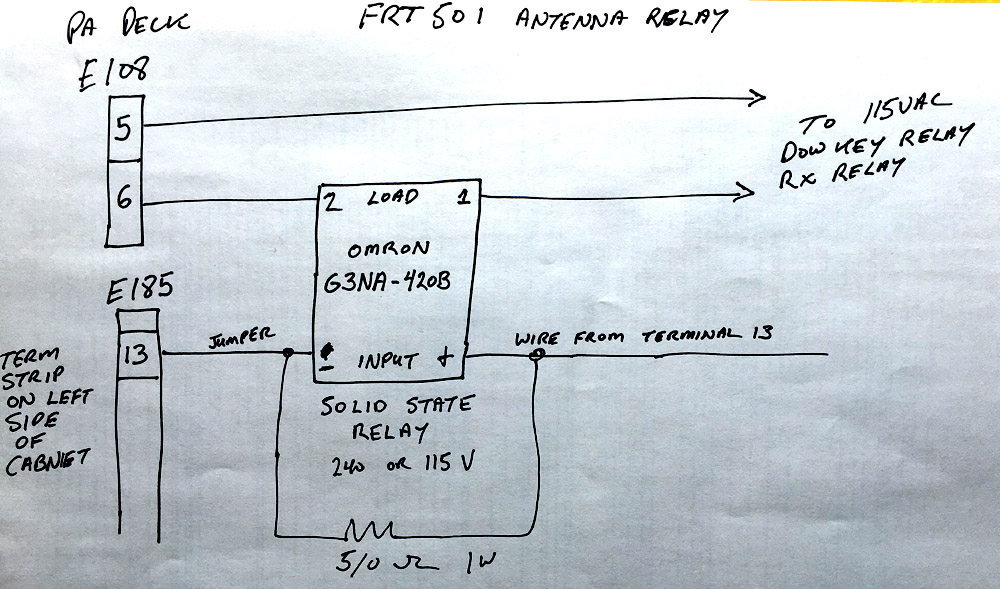 PA DECK
FRT 501 ANTENNA RELAY
E108
5
6
TO 115VAC
DOW KEY RELAY
RX RELAY
2 LOAD 1
OMRON
G3NA-420B
- INPUT +
E185
13
JUMPER
WIRE FROM TERMINAL 13
TERM
STRIP
ON LEFT
SIDE
OF
CABNIET
SOLID STATE
RELAY
240 OR 115 V
510 Ω 1W